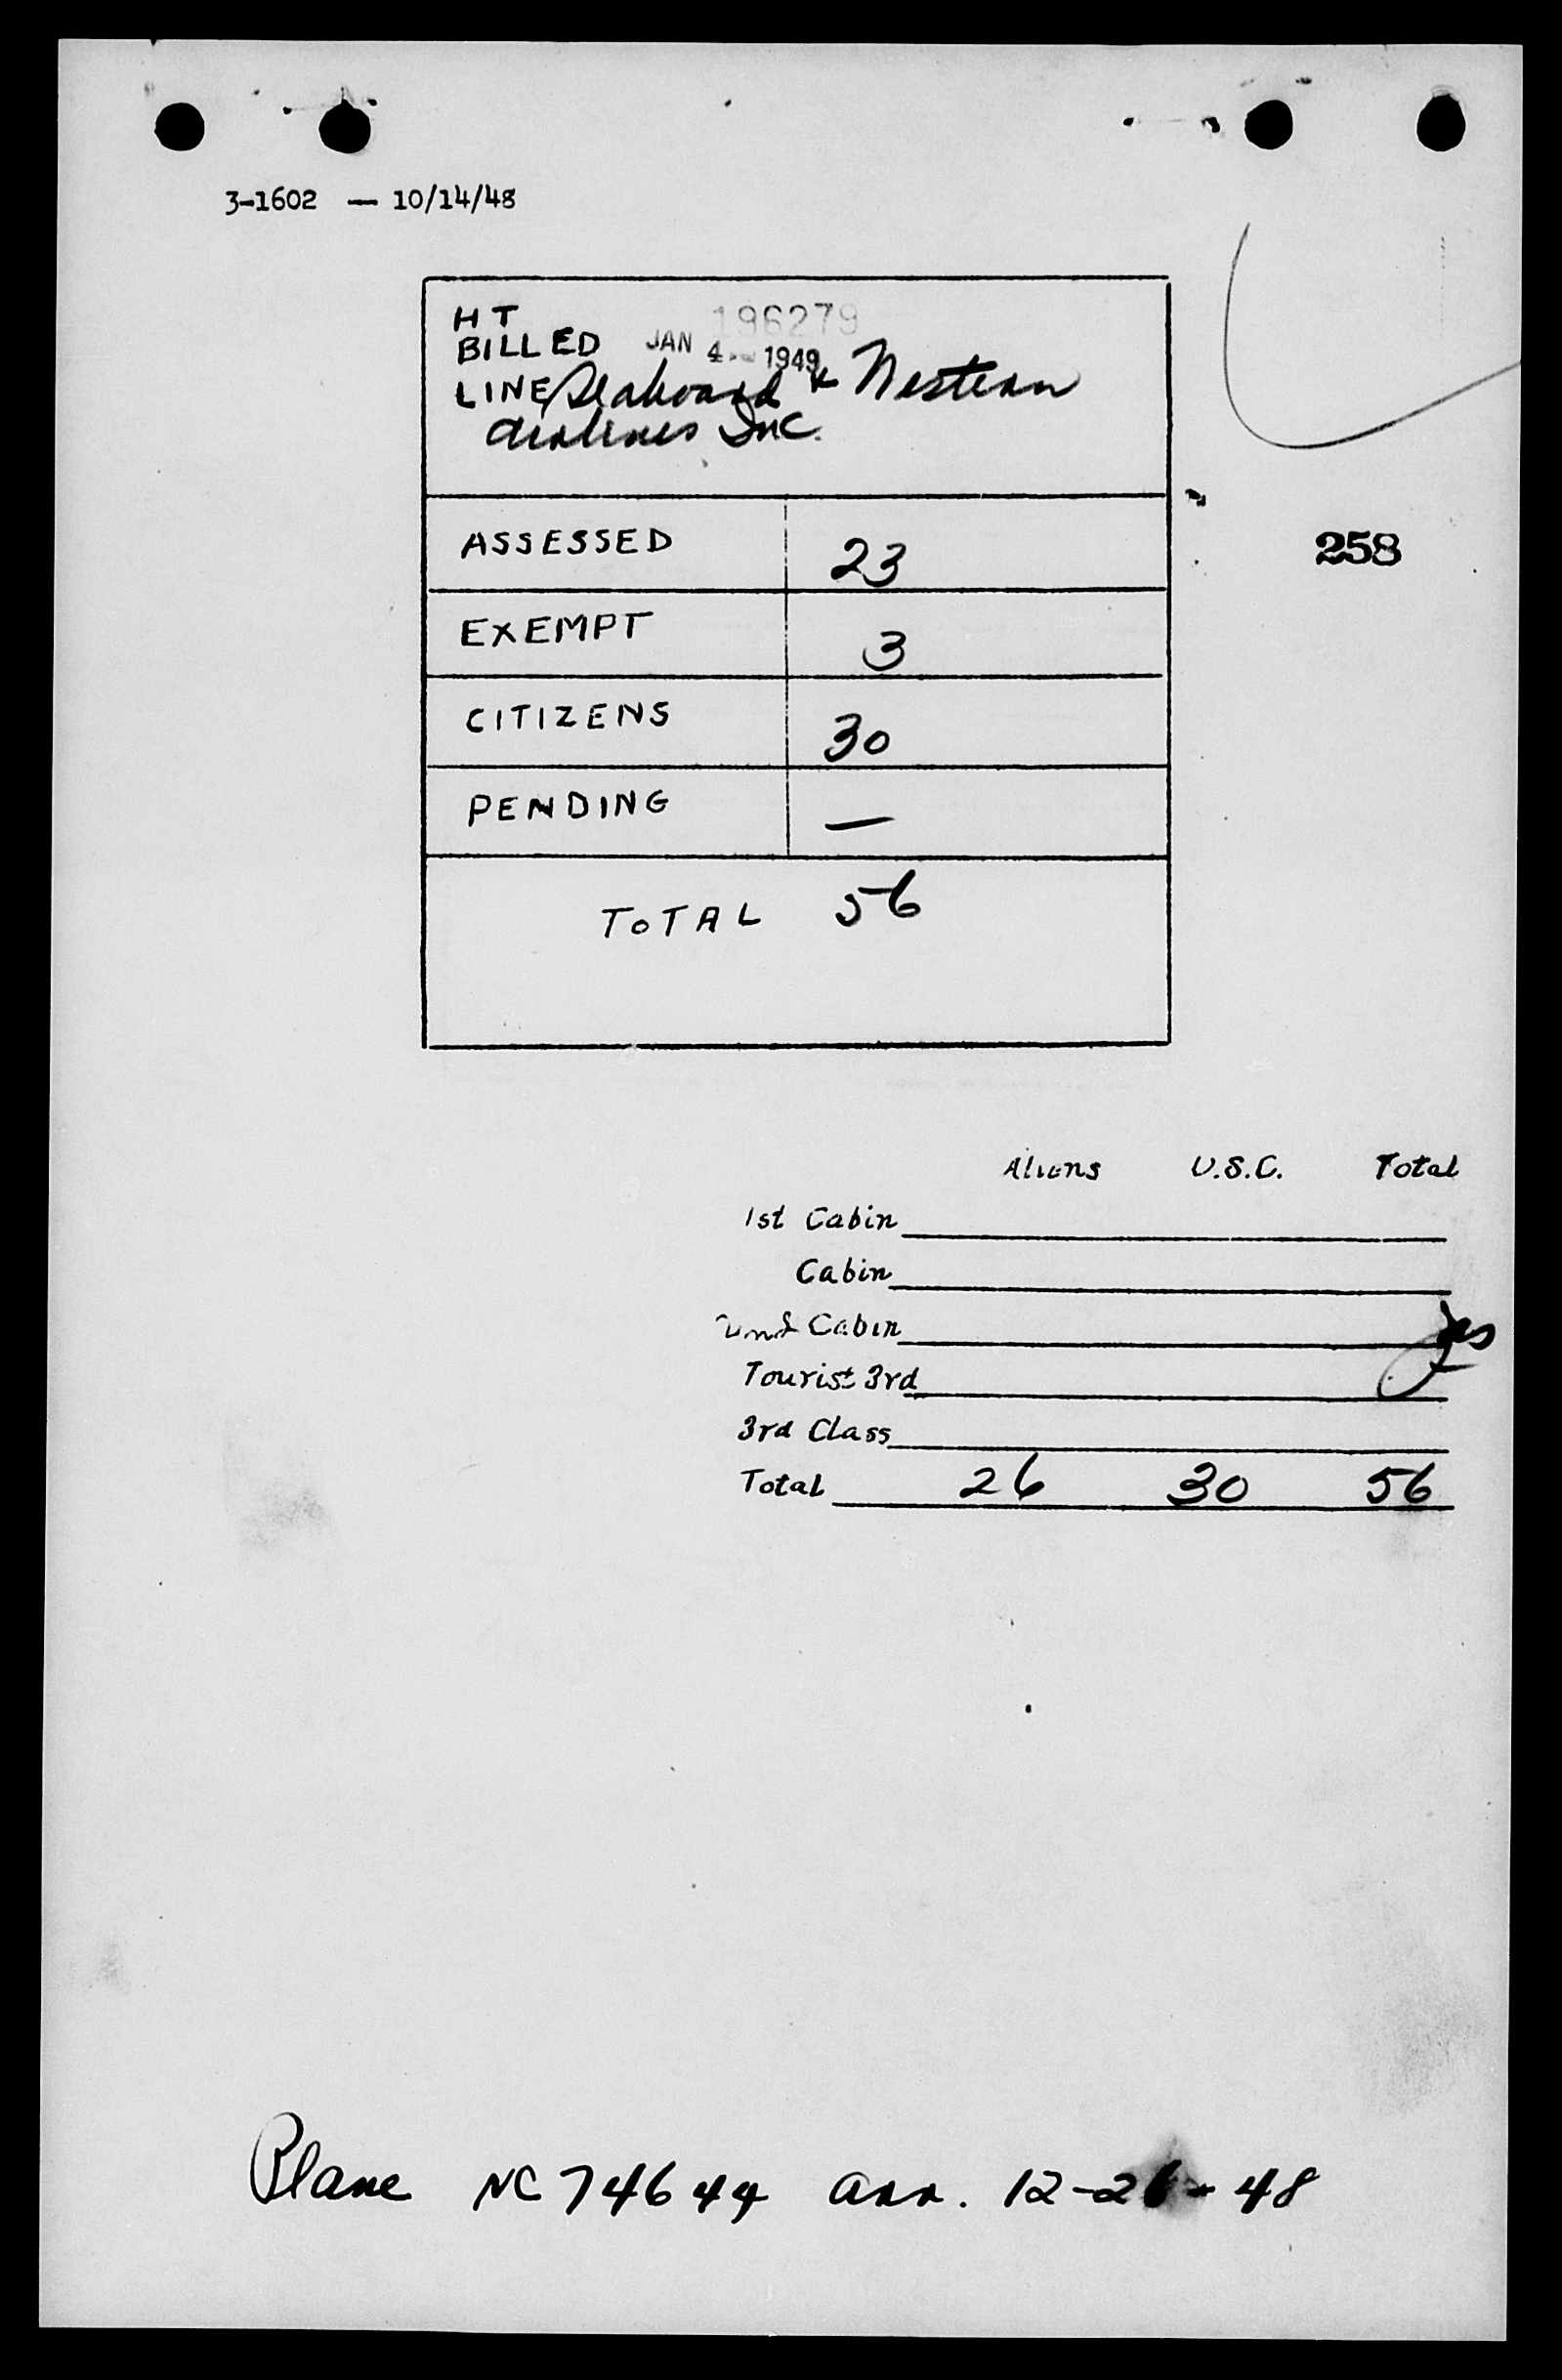 3-1602 — 10/14/48
HT 196279
BILLED JAN 4 - 1949
LINE Seaboard & Western
Airlines Inc.
258
ASSESSED 23
EXEMPT 3
CITIZENS 30
PENDING —
TOTAL 56
Aliens U.S.C. Total
1st Cabin
Cabin
2nd Cabin
Tourist 3rd
3rd Class
Total 26 30 56
Plane NC 74644 arr. 12-26-48